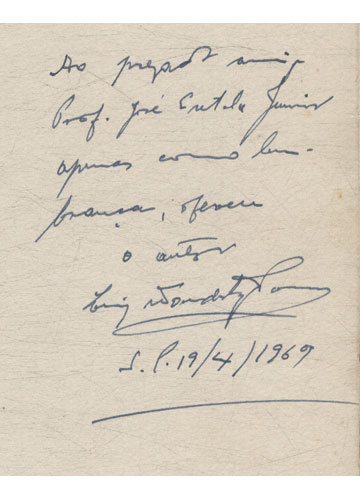 Ao prezado amigo
Prof. José Cretella Junior
apenas como lem-
brança, oferece
o autor
S. P. 19/4/1969